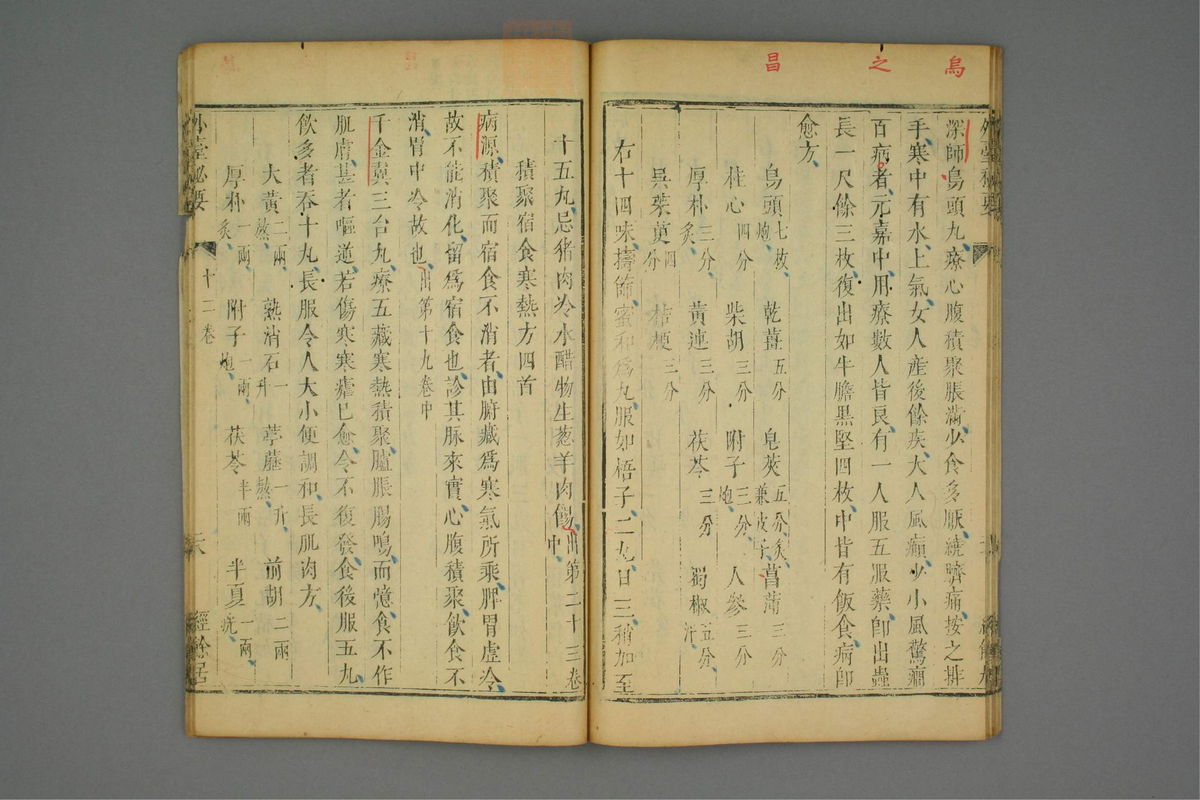 烏之昌
深師烏頭丸療心腹積聚脹滿少食多厭繞臍痛按之排
手寒中有水上氣女人產後餘疾大人風癲少小風驚癇
百病者元嘉中用療數人皆良有一人服五服藥卽出蟲
長一尺餘三枚復出如牛膽黑堅四枚中皆有飯食病卽
愈方
烏頭七枚炮 乾薑五分 皂莢五分炙兼皮子 菖蒲三分
桂心四分 柴胡三分 附子三分炮 人參三分
厚朴三分炙 黃連三分 茯苓三分 蜀椒五分汗
吳茱萸四分 桔梗三分
右十四味擣篩蜜和爲丸服如梧子二丸日三稍加至
十五丸忌猪肉冷水醋物生葱羊肉餳出第二十三卷中
積聚宿食寒熱方四首
病源積聚而宿食不消者由腑藏爲寒氣所乘脾胃虛冷
故不能消化留爲宿食也診其脉來實心腹積聚飲食不
消胃中冷故也出第十九卷中
千金冀三台丸療五藏寒熱積聚臚脹腸鳴而憶食不作
肌膚甚者嘔逆若傷寒寒瘧已愈令不復發食後服五丸
飲多者吞十丸長服令人大小便調和長肌肉方
大黃二兩熬 熟消石一升 葶藶一升熬 前胡二兩
厚朴一兩炙 附子一兩炮 茯苓半兩 半夏一兩洗
外臺祕要 十二卷 經餘居